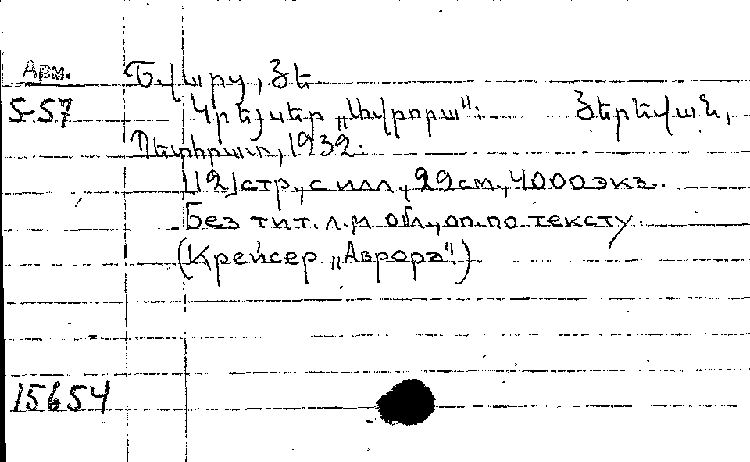 Арм.
Շվարց, Յե
5-57 Կրեյսեր „Ավրորա“: Յերեվան,
Պետհրատ, 1932.
[12] стр., с илл., 22 см., 4000 экз.
Без тит. л. и обл., оп. по тексту
(Крейсер „Аврора“)
15654